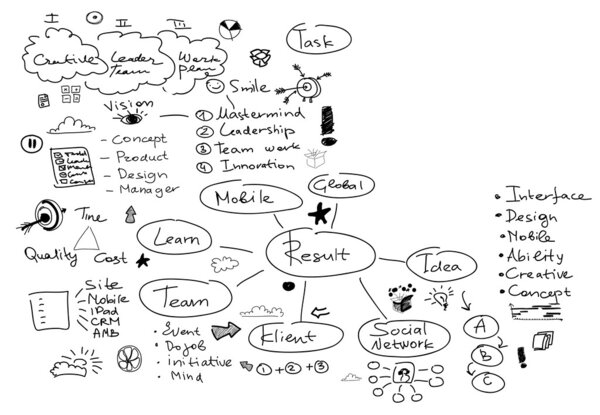 I
II
III
Creative
Leader
Team
Work
plan
Task
Smile
Vision
① Mastermind
② Leadership
③ Team work
④ Innoration
- Concept
- Product
- Design
- Manager
Mobile
Global
Time
Quality
Cost
Learn
Result
Idea
Team
Klient
Social
Network
• Interface
• Design
• Mobile
• Ability
• Creative
• Concept
Site
Mobile
IPad
CRM
ANB
• Event
• DoJob
• initiative
• Mind
①+②+③
A
B
C
B